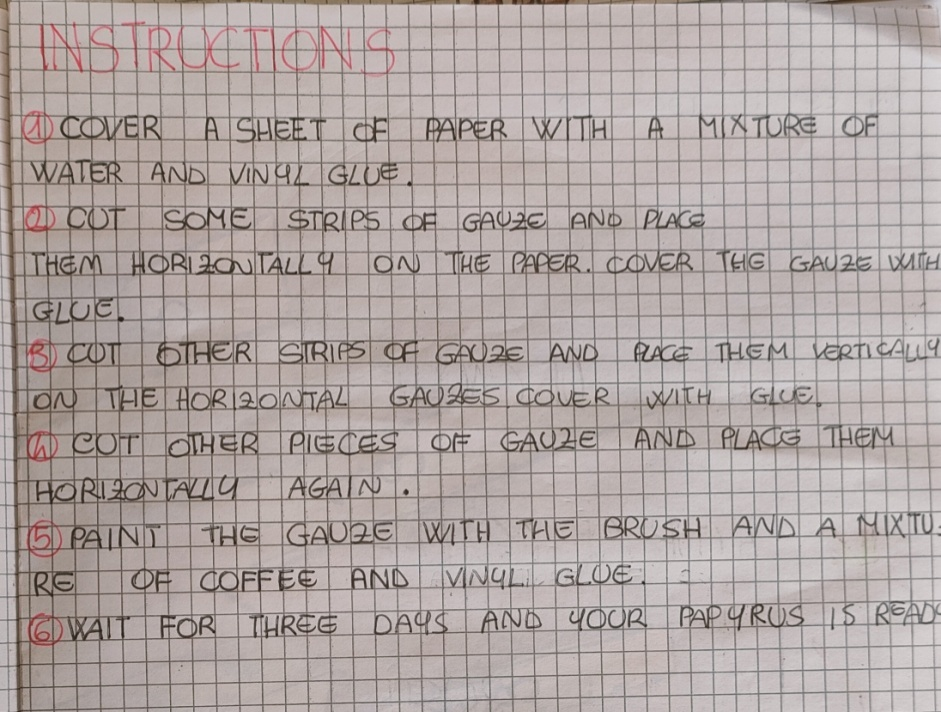 INSTRUCTIONS
1 COVER A SHEET OF PAPER WITH A MIXTURE OF
WATER AND VINYL GLUE.
2 CUT SOME STRIPS OF GAUZE AND PLACE
THEM HORIZONTALLY ON THE PAPER. COVER THE GAUZE WITH
GLUE.
3 CUT OTHER STRIPS OF GAUZE AND PLACE THEM VERTICALLY
ON THE HORIZONTAL GAUZES COVER WITH GLUE.
4 CUT OTHER PIECES OF GAUZE AND PLACE THEM
HORIZONTALLY AGAIN.
5 PAINT THE GAUZE WITH THE BRUSH AND A MIXTU
RE OF COFFEE AND VINYL GLUE.
6 WAIT FOR THREE DAYS AND YOUR PAPYRUS IS READ